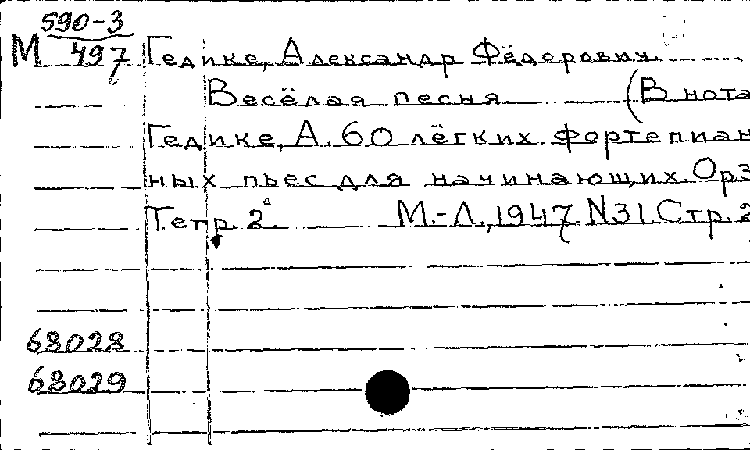 590-3
М 497 Гедике, Александр Фёдорович.
Весёлая песня (В нота
Гедике, А. 60 лёгких фортепиан
ных пьес для начинающих. Ор3
Тетр. 2ª. М.-Л., 1947 N31. Стр. 2
68028
68029